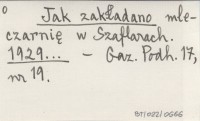 o
Jak zakładano mle-
czarnię w Szaflarach.
1929... – Gaz. Podh. 17,
nr 19.
BT/022/0666